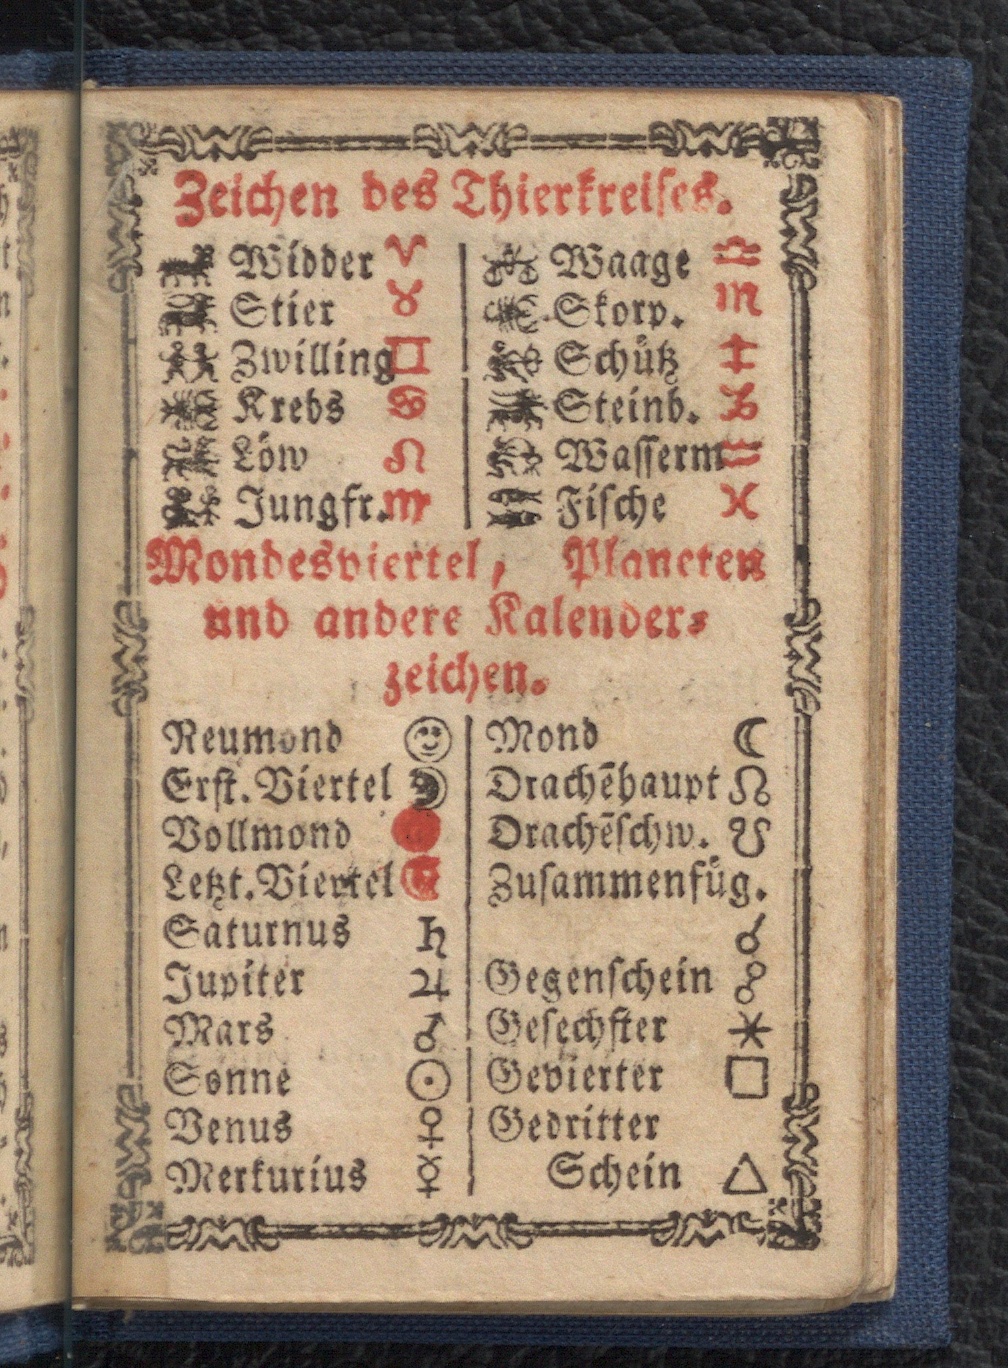 Zeichen des Thierkreises.
Widder ♈
Stier ♉
Zwilling ♊
Krebs ♋
Löw ♌
Jungfr. ♍
Waage ♎
Skorp. ♏
Schütz ♐
Steinb. ♑
Wasserm ♒
Fische ♓
Mondesviertel, Planeten
und andere Kalender⸗
zeichen.
Neumond
Erst. Viertel
Vollmond
Letzt. Viertel
Saturnus ♄
Jupiter ♃
Mars ♂
Sonne ☉
Venus ♀
Merkurius ☿
Mond ☾
Drachēhaupt ☊
Drachēschw. ☋
Zusammenfüg.
☌
Gegenschein ☍
Gesechster ⚹
Gevierter □
Gedritter
Schein △